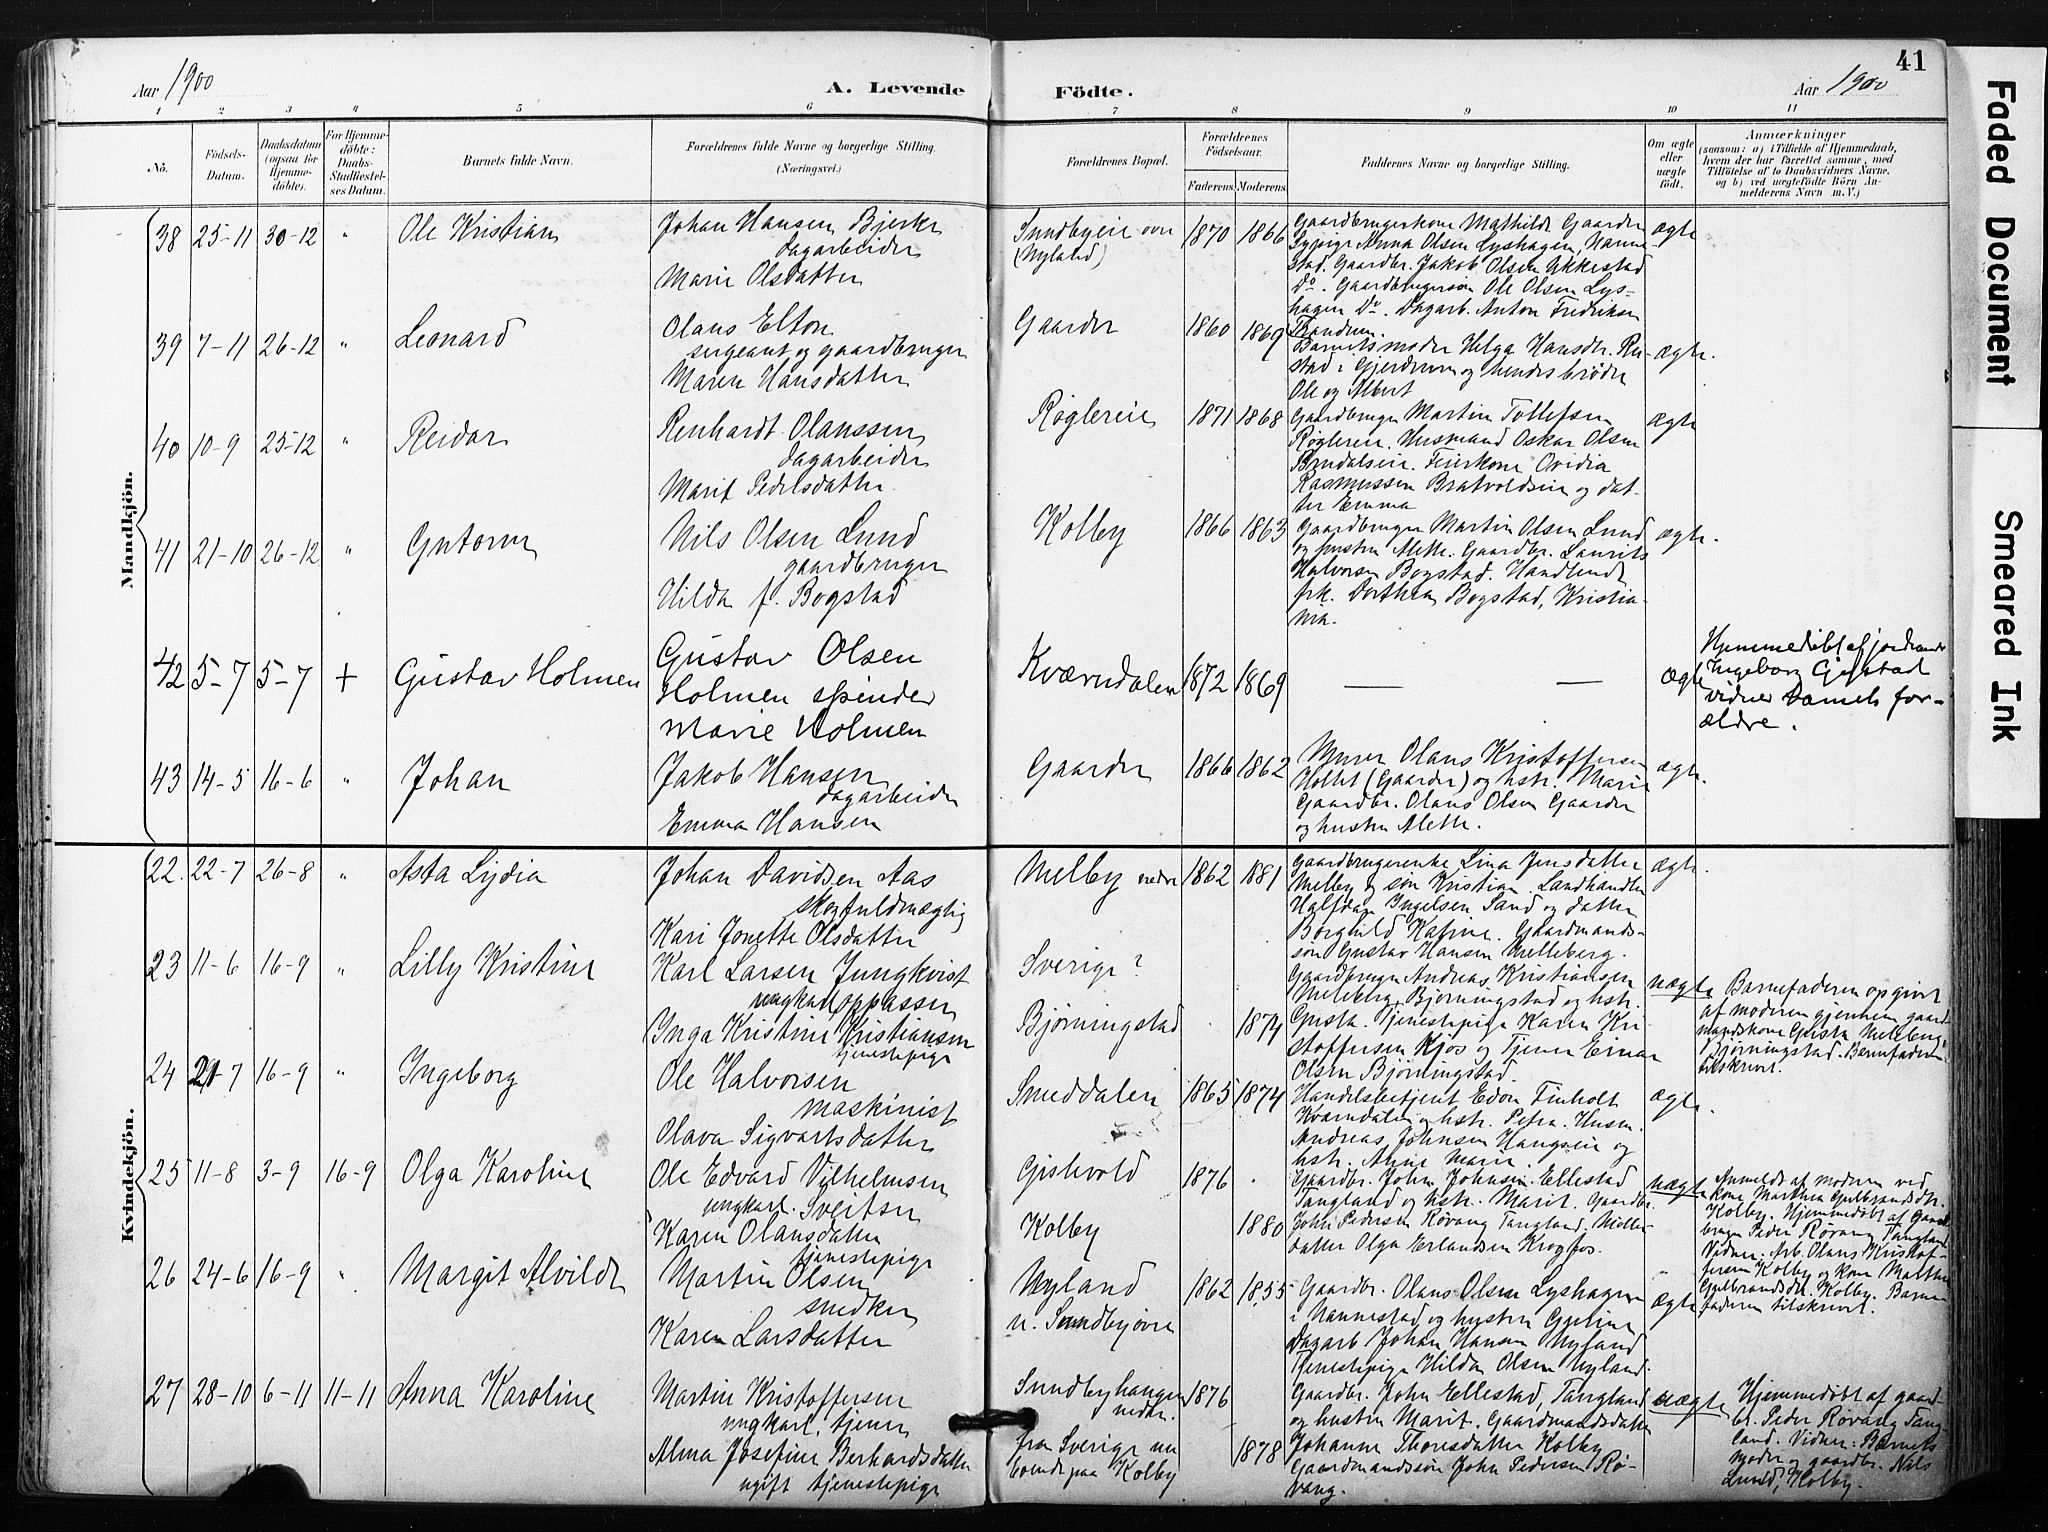 41
Aar 1900
A. Levende Födte.
Aar 1900
1 2 3 4 5 6 7 8 9 10 11
No.
Födsels-Datum.
Daabsdatum (ogsaa for Hjemmedöbte).
For Hjemmedöbte: Daabs-Stadfæstelses Datum.
Barnets fulde Navn.
Forældrenes fulde Navne og borgerlige Stilling.
(Næringsvei.)
Forældrenes Bopæl.
Forældrenes Födselsaar.
Faderens. Moderens.
Faddernes Navne og borgerlige Stilling.
Om ægte eller uægte födt.
Anmærkninger
(saasom: a) i Tilfælde af Hjemmedaab, hvem der har forrettet samme, med Tilföielse af to Daabsvidners Navne, og b) ved uægtefödte Börn Anmelderens Navn m. V.)
Mandkjön.
38 25-11 30-12 " Ole Kristian
Johan Hansen Bjerke
dagarbeider
Marie Olsdatter
Sundbyeie øvre
(Nyland)
1870 1866
Gaardbrugerkone Mathilde Gaarder
Sypige Anna Olsen Lyshagen, Nanne-
stad. Gaardbr. Jakob Olsen Ukkestad
Do. Gaardbrugersøn Ole Olsen Lys-
hagen Do. Dagarb. Anton Fredriksen
Trandum.
ægte
39 7-11 26-12 " Leonard
Olaus Elton
sergeant og gaardbruger
Maren Hansdatter
Gaarder
1860 1869
Barnets moder Helga Hansdtr. Ru-
stad i Gjerdrum og hendes brødre
Ole og Albert
ægte.
40 10-9 25-12 " Reidar
Renhardt Olaussen
dagarbeider
Marit Pedersdatter
Røglereie
1871 1868
Gaardbruger Martin Tollefsen
Røglereie. Husmand Oskar Olsen
Brudalseie. Feierkone Ovidia
Rasmussen Bratvoldseie og dat-
ter Emma
ægte
41 21-10 26-12 " Gutorm
Nils Olsen Lund
gaardbruger
Hilda f. Bogstad
Kolby
1866 1863
Gaardbruger Martin Olsen Lund
og hustru Alette. Gaardbr. Laurits
Halvorsen Bogstad. Handlende
frk. Dorthea Bogstad, Kristia-
nia.
ægte.
42 5-7 5-7 + Gustav Holmen
Gustav Olsen
Holmen spinder
Marie Holmen
Kværndalen
1872 1869
— —
ægte
Hjemmedøbt af jordmoder
Ingeborg Gjestad
vidner barnets for-
ældre.
43 14-5 16-6 " Johan
Jakob Hansen
dagarbeider
Emma Hansen
Gaarder
1866 1862
Murer Olaus Kristoffersen
Holtet (Gaarder) og hstr. Marie
Gaardbr. Olaus Olsen Gaarder
og hustru Alette.
ægte.
Kvindekjön.
22. 22-7 26-8 " Asta Lydia
Johan Davidsen Aas
skogfuldmægtig
Kari Jonette Olsdatter
Melby nedre
1862 1881
Gaardbrugerenke Lina Jensdatter
Melby og søn Kristian. Landhandler
Halfdan Ingelsen Sand og datter
Borghild Katine. Gaardmands-
søn Gustav Hansen Melleberg.
ægte.
23 11-6 16-9 " Lilly Kristine
Karl Larsen Jungkvist
ungkarl oppasser
Inga Kristine Kristiansen
tjenestepige
Sverige?
Bjørningstad
1874
Gaardbruger Andreas Kristiansen
Meleberg, Bjørningstad og hstr.
Gusta. Tjenestepige Karen Kri-
stoffersen Kjos og Tjener Einar
Olsen Bjørningstad.
uægte
Barnefaderen opgivet
af moderen gjennem gaard-
mandskone Gusta Meleberg,
Bjørningstad. Barnefaderen
tilskrevet.
24 21-7 16-9 " Ingeborg
Ole Halvorsen
maskinist
Olava Sigvartsdatter
Smeddalen
1865 1874
Handelsbetjent Edon Finholt
Kværndalen og hstr. Petra. Husm.
Andreas Johnsen Haugseie og
hstr. Anne Marie.
ægte.
25 11-8 3-9 16-9 Olga Karoline
Ole Edvard Vilhelmsen
ungkarl. Sveitser
Karen Olausdatter
tjenestepige
Gjestvold
Kolby
1876 1880
Gaardbr. John Johnsen Ellestad
Tangland og hstr. Marit. Gaardbr.
John Pedersen Røvang Tangland. Møller-
datter Olga Erlandsen Krogfos.
uægte
Anmeldt af moderen ved
kone Marthea Gulbrandsdtr.
Kolby. Hjemmedøbt af Gaard-
bruger Peder Røvang Tangland
Vidner: Arb. Olaus Kristof-
fersen Kolby og kone Marthea
Gulbrandsdtr. Kolby. Barne-
faderen tilskrevet.
26 24-6 16-9 " Margit Alvilde
Martin Olsen
snedker
Karen Larsdatter
Nyland
u. Sundby øvre
1862 1855
Gaardbr. Olaus Olsen Lyshagen
i Nannestad og hustru Gueline
Dagarb Johan Hansen Nyland
Tjenestepige Hilda Olsen Nyland.
ægte
27 28-10 6-11 11-11 Anna Karoline
Martin Kristoffersen
ungkarl, tjener
Alma Josefine Berhardsdatter
ugift tjenestepige
Sundbyhaugen
nedre.
fra Sverige nu
boende paa Kolby
1876 1878
Gaardbr. John Ellestad, Tangland
og hustru Marit. Gaardmandsdatter
Johanne Thoresdatter Kolby
Gaardmandssøn John Pedersen Rø-
vang.
uægte
Hjemmedøbt af gaard-
br. Peder Røvang Tang-
land. Vidner: Barnets
moder og gaardbr. Nils
Lund, Kolby.
Faded Document
Smeared Ink